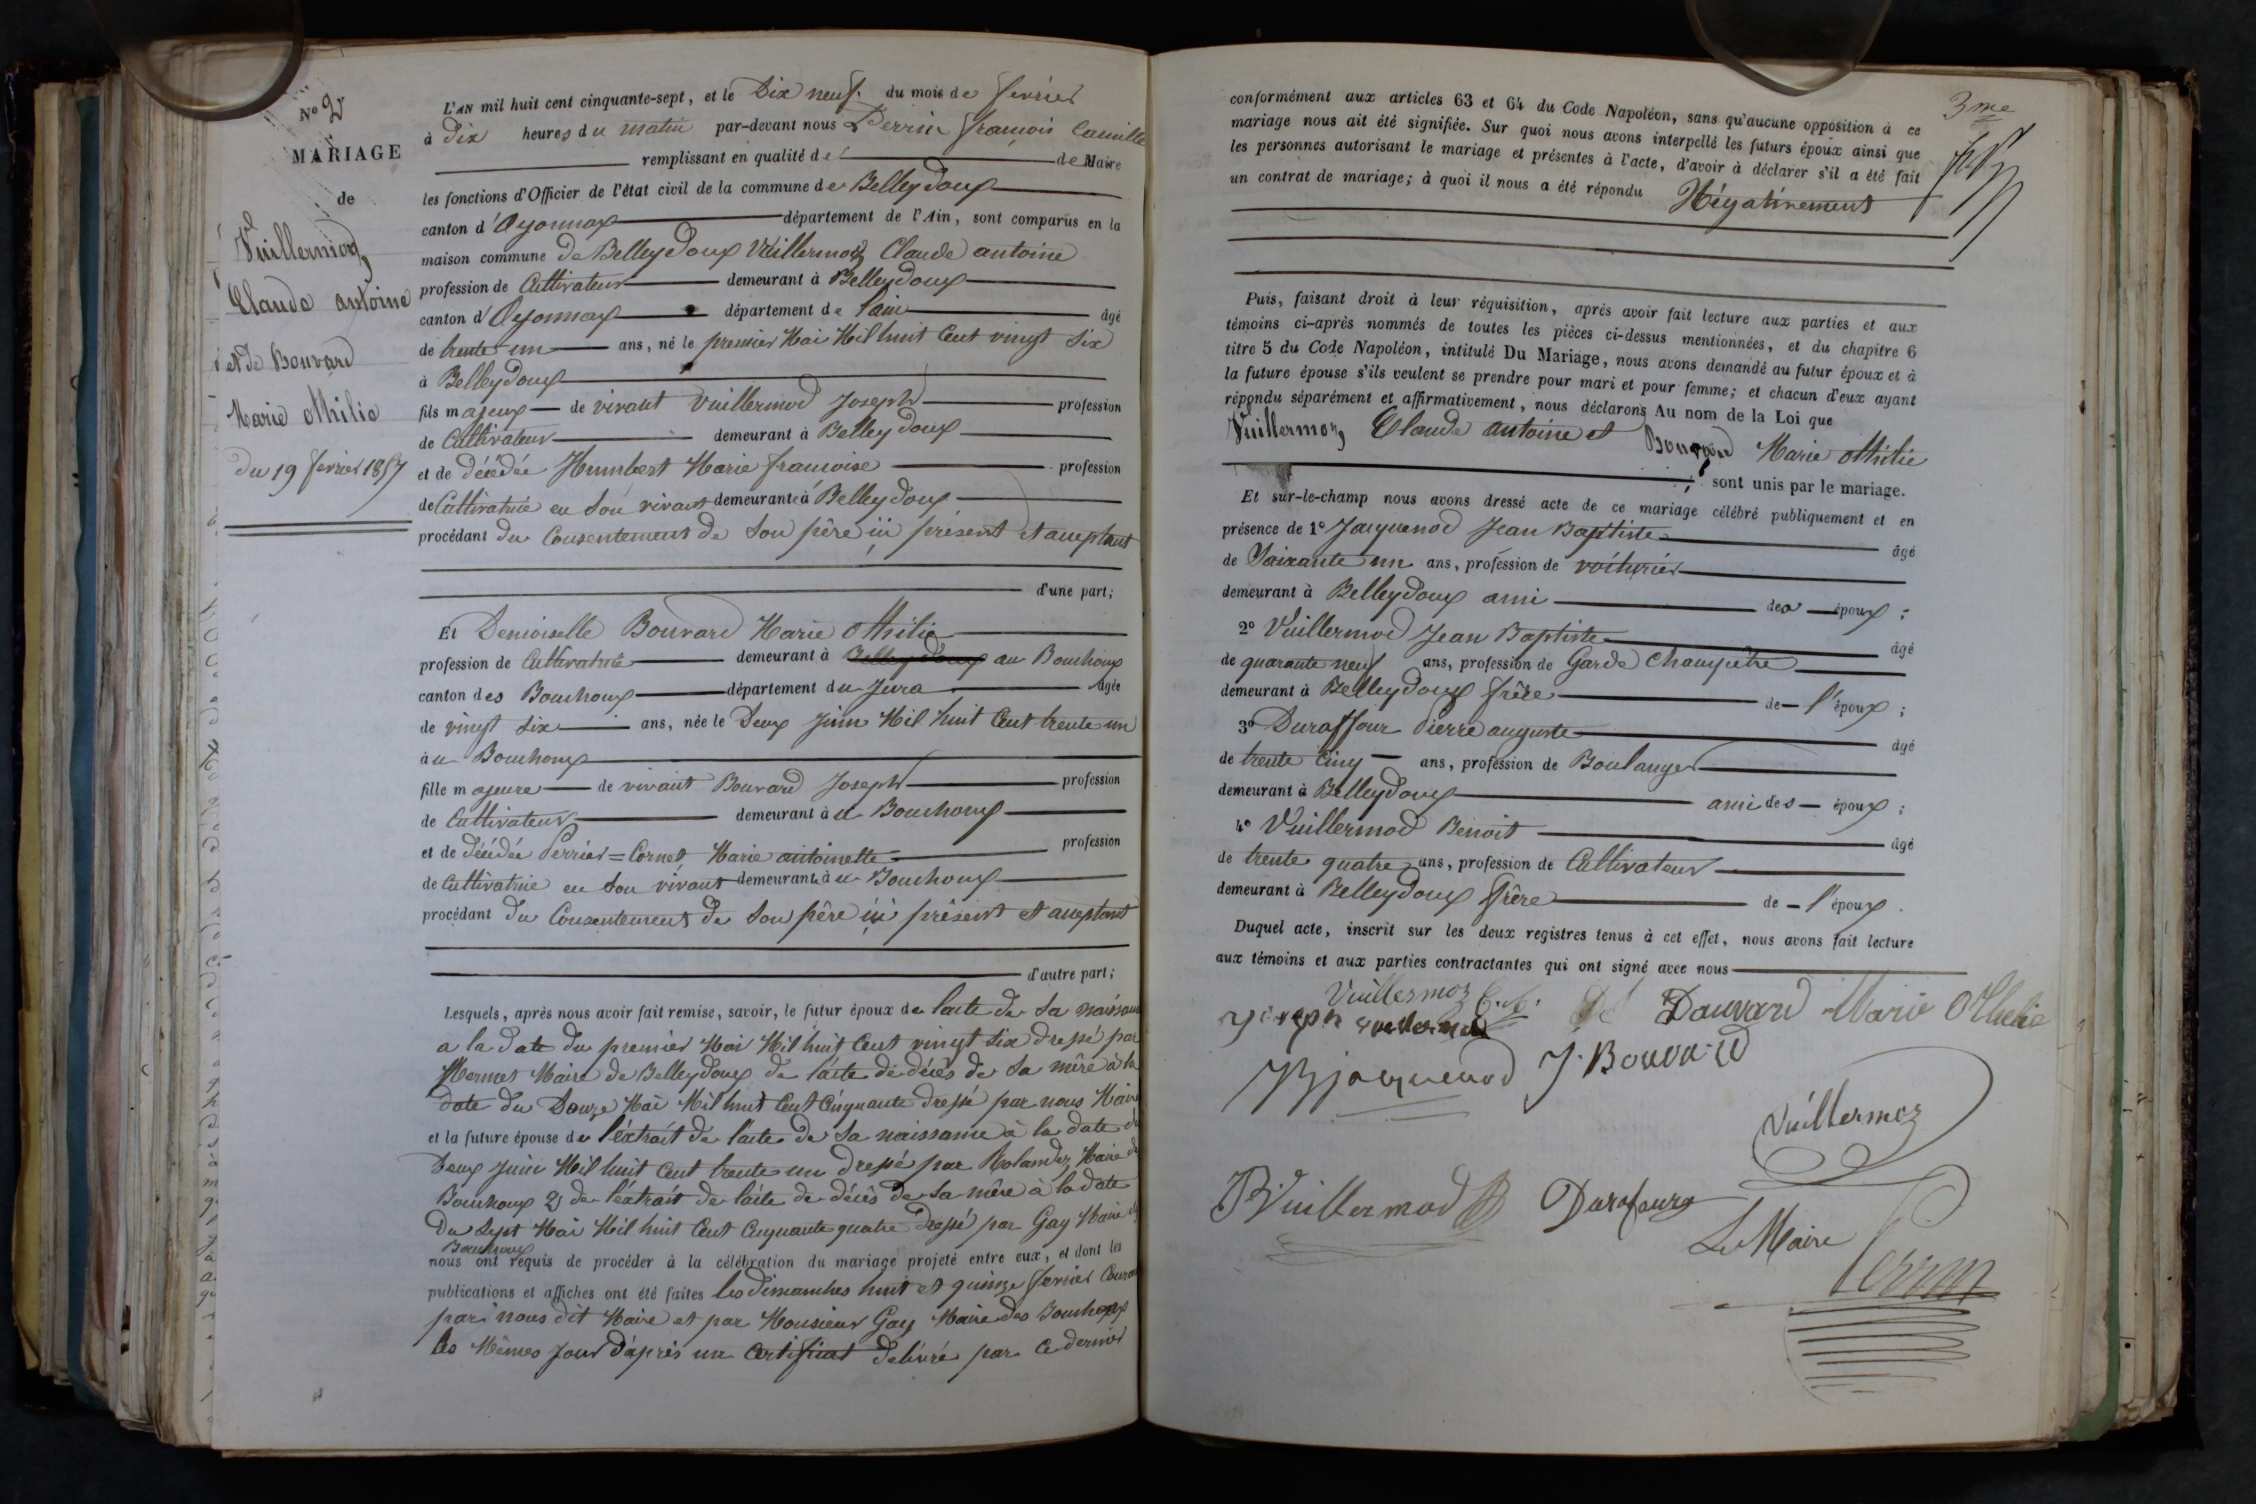 N° 2
MARIAGE
de
Vuillermoz
Claude antoine
et de Bouvard
Marie Othilie
du 19 fevrier 1857
L'AN mil huit cent cinquante-sept, et le Dix neuf du mois de fevrier
à dix heures du matin par-devant nous Perrin françois Camille
remplissant en qualité de de Maire
les fonctions d'Officier de l'état civil de la commune de Belleydoux
canton d'Oyonnax département de l'Ain, sont comparus en la
maison commune de Belleydoux Vuillermoz Claude antoine
profession de Cultivateur demeurant à Belleydoux
canton d'Oyonnax département de l'ain âgé
de trente un ans, né le premier Mai Mil huit Cent vingt Six
à Belleydoux
fils majeur de vivant Vuillermod Joseph profession
de Cultivateur demeurant à Belleydoux
et de décédée Humbert Marie francoise profession
de Cultivatrice en Son vivant demeurante à Belleydoux
procédant du Consentement de Son père ici présent et acceptant
d'une part;
Et Demoiselle Bouvard Marie Othilie
profession de Cultivatrice demeurant à Belleydoux au Bouchoux
canton des Bouchoux département du Jura âgée
de vingt Six ans, née le Deux Juin Mil huit Cent trente un
à u Bouchoux
fille majeure de vivant Bouvard Joseph profession
de Cultivateur demeurant à u Bouchoux
et de décédée Perrier=Cornet Marie antoinette profession
de Cultivatrice en Son vivant demeurant à u Bouchoux
procédant du Consentement de Son père ici présent et acceptant
d'autre part;
Lesquels, après nous avoir fait remise, savoir, le futur époux de l'acte de Sa naissance
a la date du premier Mai Mil huit Cent vingt Six dressé par
Mermet Maire de Belleydoux de l'acte de décès de Sa mère à la
date du Douze Mai Mil huit Cent Cinquante dressé par nous Maire
et la future épouse de l'extrait de l'acte de Sa naissance à la date du
Deux Juin Mil huit Cent trente un dressé par Rolandez Maire de
Bouchoux & de l'extrait de l'acte de décès de Sa mère à la date
Du Sept Mai Mil huit Cent Cinquante quatre dressé par Gay Maire des
Bouchoux
nous ont requis de procéder à la célébration du mariage projeté entre eux, et dont les
publications et affiches ont été faites les dimanches huit et quinze fevrier Courant
par nous dit Maire et par Monsieur Gay Maire des Bouchoux
les Mêmes jour d'après un Certificat délivré par Ce dernier
3me
conformément aux articles 63 et 64 du Code Napoléon, sans qu'aucune opposition à ce
mariage nous ait été signifiée. Sur quoi nous avons interpellé les futurs époux ainsi que
les personnes autorisant le mariage et présentes à l'acte, d'avoir à déclarer s'il a été fait
un contrat de mariage; à quoi il nous a été répondu Négativement
Puis, faisant droit à leur réquisition, après avoir fait lecture aux parties et aux
témoins ci-après nommés de toutes les pièces ci-dessus mentionnées, et du chapitre 6
titre 5 du Code Napoléon, intitulé Du Mariage, nous avons demandé au futur époux et à
la future épouse s'ils veulent se prendre pour mari et pour femme; et chacun d'eux ayant
répondu séparément et affirmativement, nous déclarons Au nom de la Loi que
Vuillermoz Claude antoine et Bouvard Marie Othilie
sont unis par le mariage.
Et sur-le-champ nous avons dressé acte de ce mariage célébré publiquement et en
présence de 1° Jacquenod Jean Baptiste âgé
de Soixante un ans, profession de voiturier
demeurant à Belleydoux ami des époux;
2° Vuillermod Jean Baptiste âgé
de quarante neuf ans, profession de Garde Champêtre
demeurant à Belleydoux frère de l'époux;
3° Duraffour Pierre auguste âgé
de trente Cinq ans, profession de Boulanger
demeurant à Belleydoux ami des époux;
4° Vuillermod Benoit âgé
de trente quatre ans, profession de Cultivateur
demeurant à Belleydoux frère de l'époux.
Duquel acte, inscrit sur les deux registres tenus à cet effet, nous avons fait lecture
aux témoins et aux parties contractantes qui ont signé avec nous
Vuillermoz C. A. Bouvard Marie Othilie
Joseph vuillermod
JB jacquenod J. Bouvard
Vuillermoz
JB Vuillermod Durafourg
Le Maire
Perrin